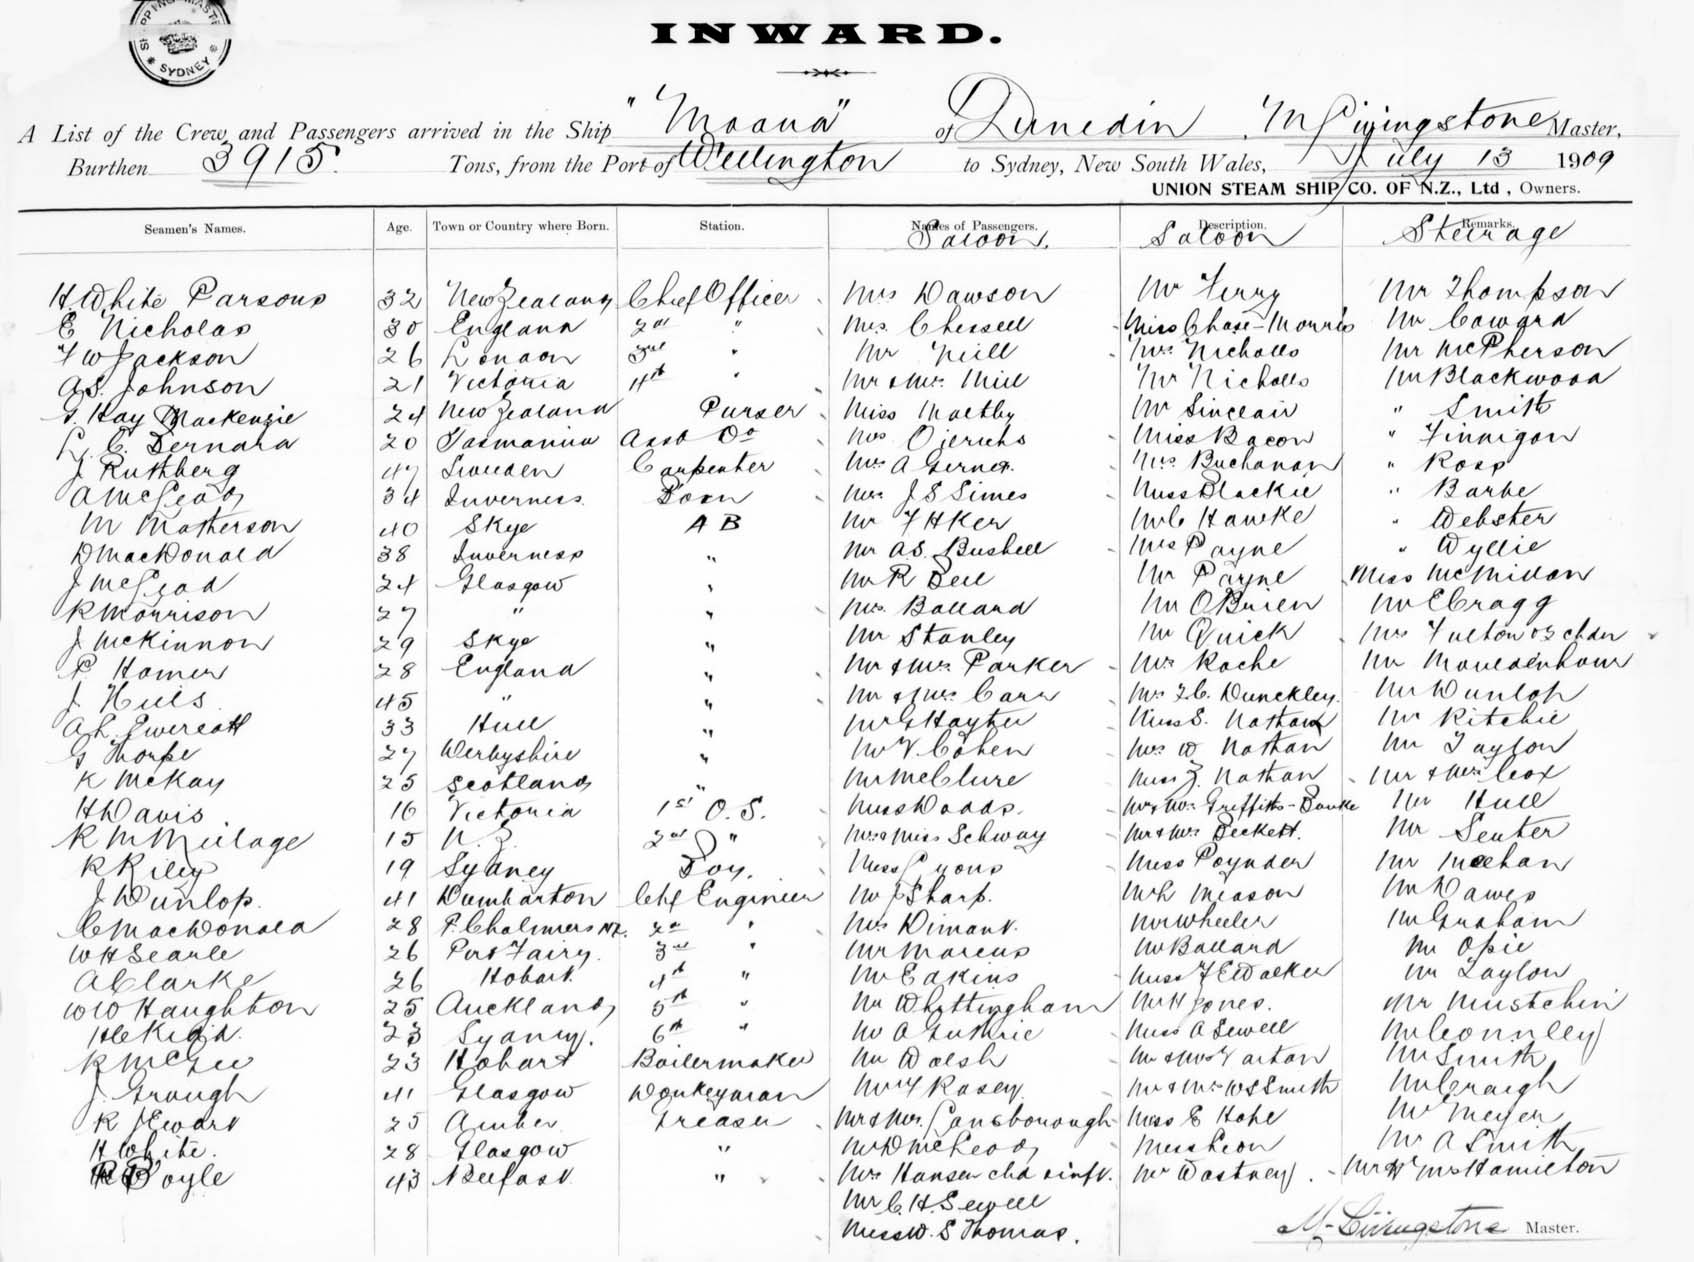 SHIPPING MASTER
SYDNEY
INWARD.
A List of the Crew and Passengers arrived in the Ship "Moana" of Dunedin, M Livingstone Master,
Burthen 3915. Tons, from the Port of Wellington to Sydney, New South Wales, July 13 1909
UNION STEAM SHIP CO. OF N.Z., Ltd, Owners.
Seamen's Names. Age. Town or Country where Born. Station. Names of Passengers. Description. Remarks.
Saloon. Saloon Steerage
H. White Parsons 32 New Zealand Chief Officer Mrs Dawson Mr Ferry Mr Thompson
E Nicholas 30 England 2nd " Mrs. Chessell Miss Chase-Morris Mr Coward
F W Jackson 26 London 3rd " Mr Neill Mrs Nicholls Mr McPherson
A.S. Johnson 21 Victoria 4th " Mr & Mrs. Mill Mr Nicholls Mr Blackwood
Hay Mackenzie 24 New Zealand Purser Miss Maltby Mr Sinclair " Smith
L. C. Bernard 20 Tasmania Asst Do Mrs Ojerichs Miss Bacon " Finnigan
J Ruthberg 47 Sweden Carpenter Mrs A Mrs. Buchanan " Ross
A McLeod 34 Inverness. Bosn Mrs. J S Simes Miss Blackie " Barbe
M Matherson 40 Skye A B Mr F H Ker Mr C Hawke " Webster
D MacDonald 38 Inverness " Mr A.S. Bushell Mrs Payne " Wyllie
J McLeod 24 Glasgow " Mr R Bell Mr Payne Miss McMillan
R Morrison 27 " " Mrs. Ballard Mr O'Brien Mr E Cragg
J McKinnon 29 Skye " Mr Stanley Mr Quick Mrs Fulton & 3 chdn
P Homer 28 England " Mr & Mrs. Parker Mrs Roche Mr
J Hills. 45 " " Mr & Mrs. Carr Mrs F.C. Dunckley. Mr Dunlop
A L 33 Hull " Mr G Hayter Miss S. Nathan Mr Ritchie
G Thorpe 27 Derbyshire " Mr V. Cohen Mrs D Nathan Mr Taylor
K McKay 25 Scotland " Mr McClure Miss Z. Nathan Mr & Mrs Cox
H Davis 16 Victoria 1st O.S. Miss Dodds. Mr & Mrs Griffiths- Mr Hull
R M Millage 15 N. Z. 2nd " Mrs & Miss Schway Mr & Mrs Beckett. Mr Senter
R Riley 19 Sydney Boy. Miss Lyons Miss Poynder Mr Meehan
J Dunlop. 41 Dumbarton Chf Engineer Mr J Sharp. Mr L Meason Mr Dawes
C MacDonald 28 P. Chalmers NZ. 2nd " Mrs Dimant. Mr Wheeler Mr Graham
W H Searle 26 Port Fairy. 3rd " Mr Marcus Mr Ballard Mr Opie
A Clarke 26 Hobart 4th " Mr Eakins Miss F E Walker Mr Taylor
W W Haughton 25 Auckland 5th " Mr Whittingham Mr H Jones. Mr Mustchin
23 Sydney. 6th " Mr A Guthrie Miss A Sewell Mr Connley
R McGee 23 Hobart Boilermaker Mr Walsh Mr & Mrs Varton Mr Smith
J Grough 41 Glasgow Donkeyman Mr F Kasey Mr & Mrs W S Smith Mr Craigh
R Ewart 25 Greaser Mr & Mrs. Gansborough Miss E Hope Mr Meyer
H White. 28 Glasgow " Mr D McLeod Miss Leon Mr A Smith
Boyle 43 Belfast " Mrs Hansen chd & inft. Mr Wastney Mr & Mrs Hamilton
Mr C. H. Sewell
Miss W. S Thomas.
M Livingstone Master.